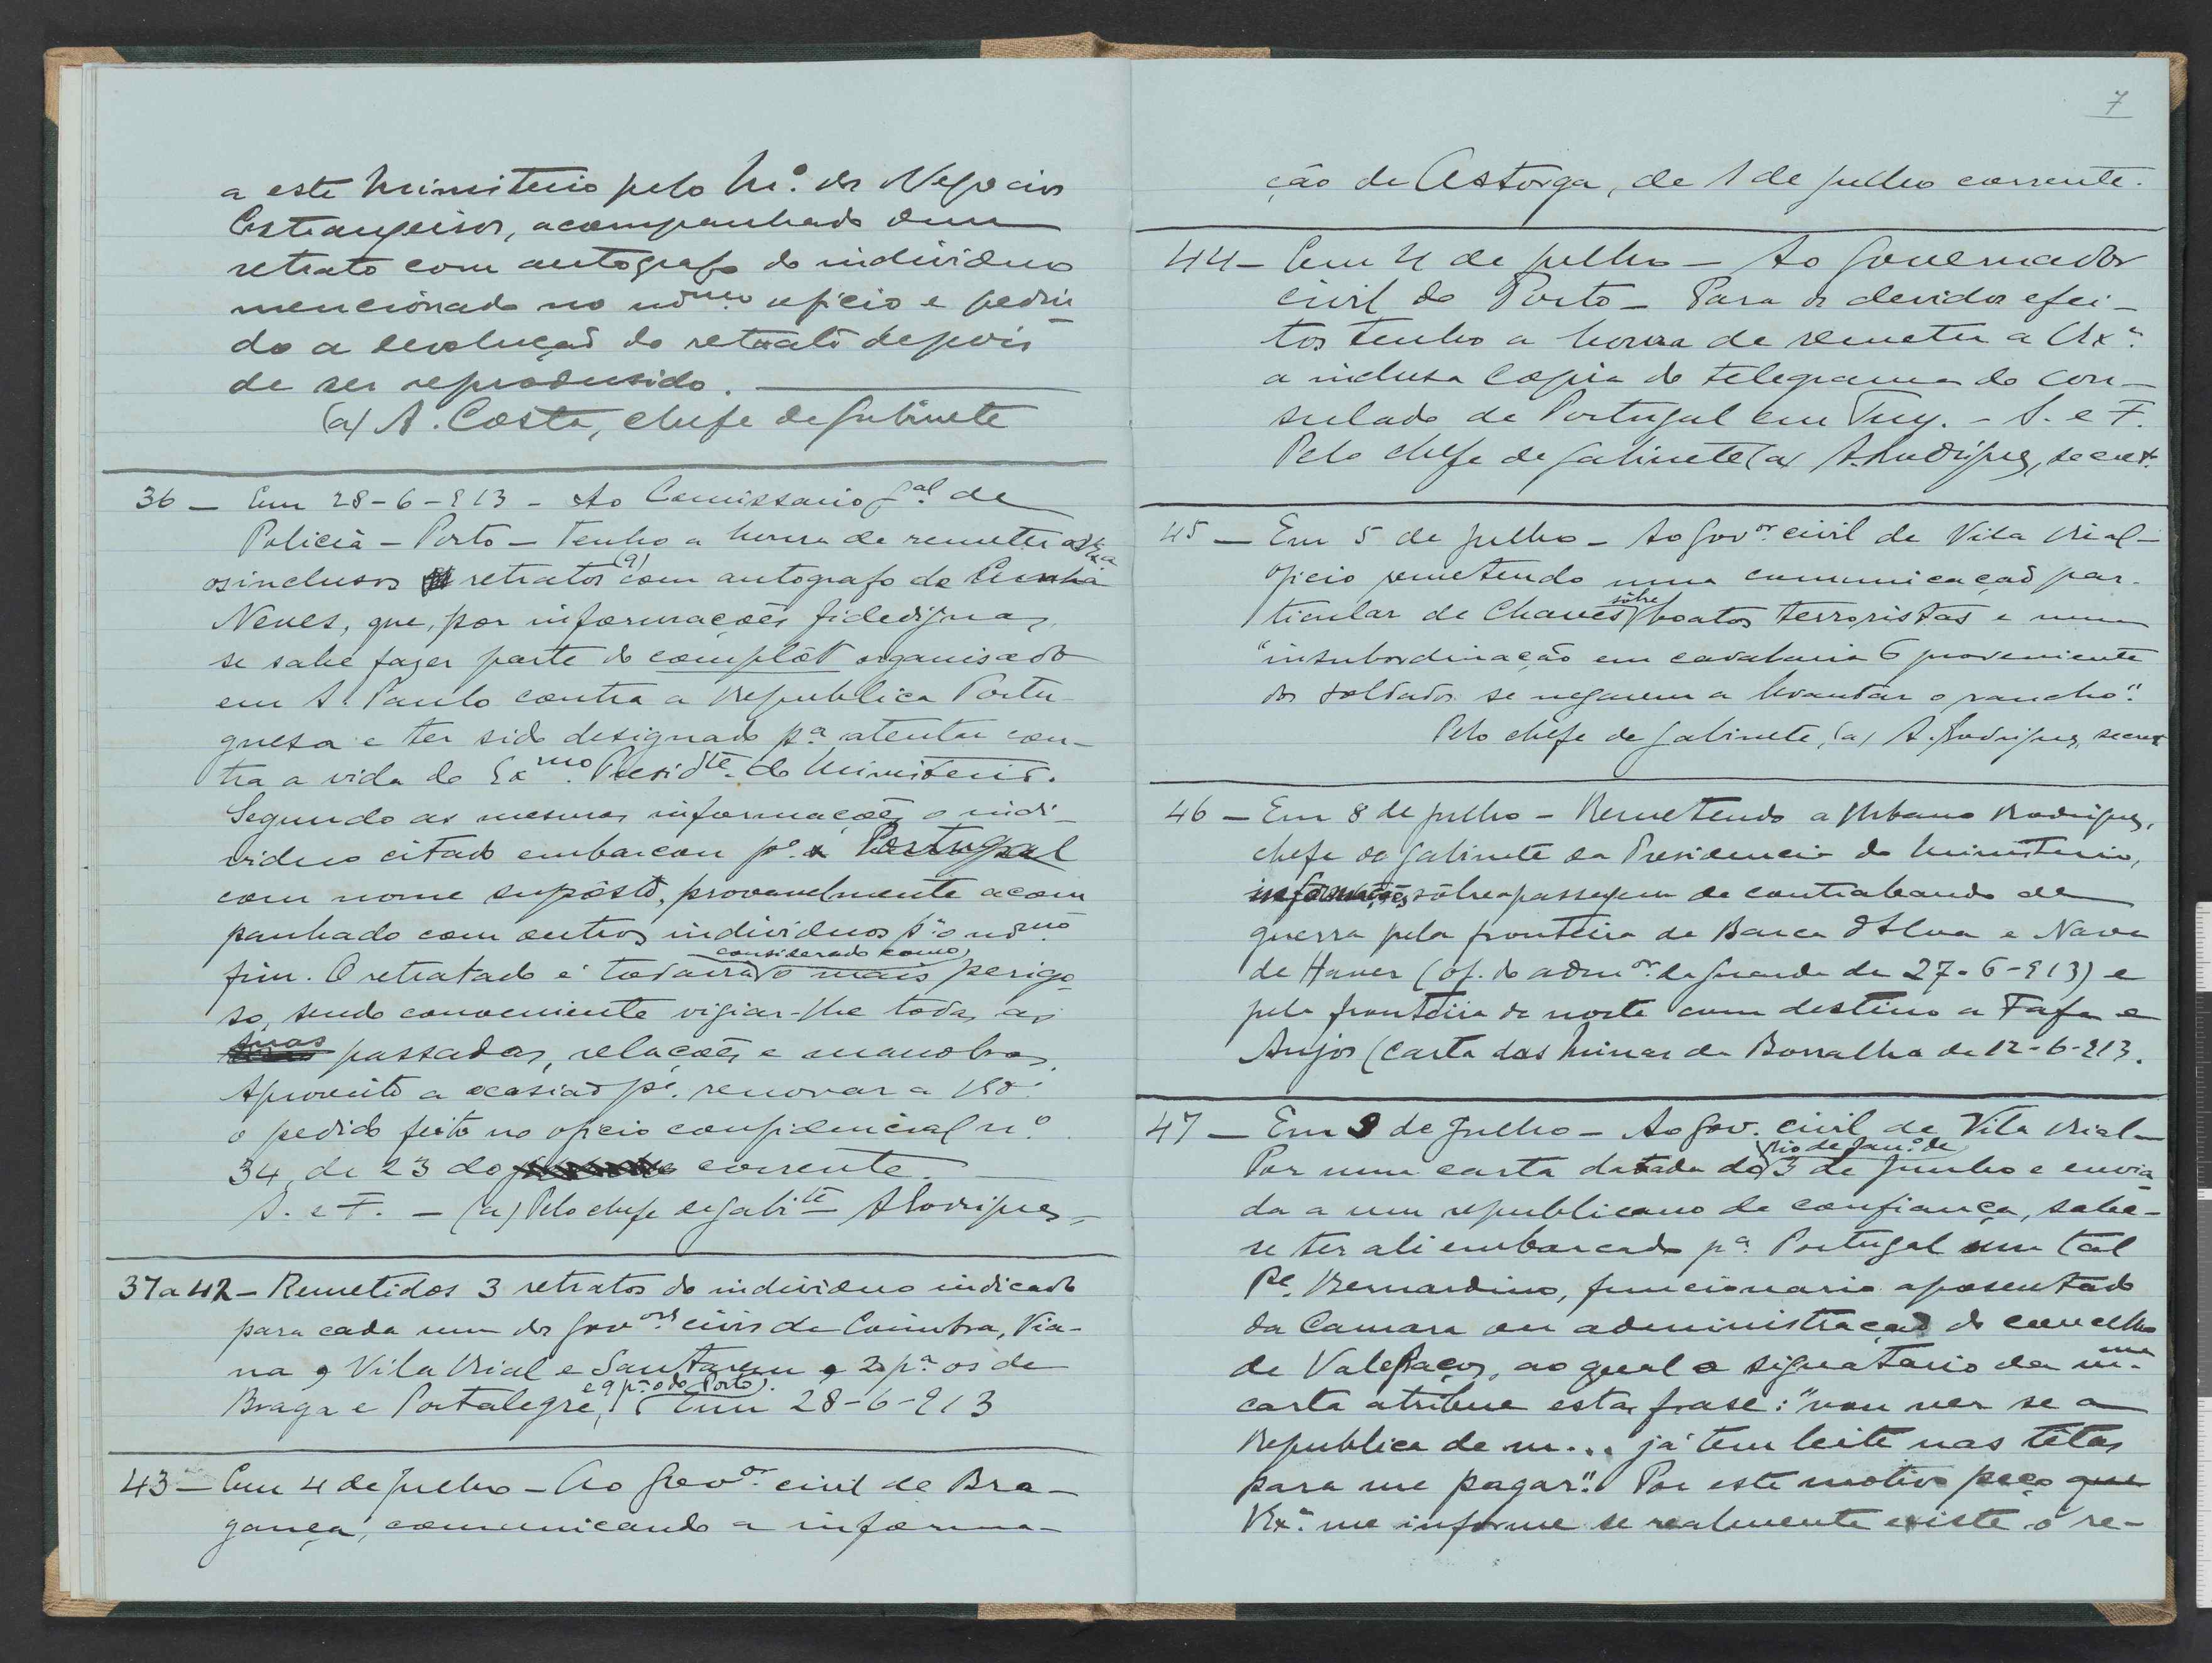 a este Ministerio pelo M.º dos Negocios
Estrangeiros, acompanhado dum
retrato com autografo do individuo
mencionado no mesmo oficio e pedin-
do a devolução do retrato depois
de ser reprodusido.
(a) A. Costa, chefe de gabinete
36 — Em 28-6-913 - Ao Comissario g.al de
Policia - Porto - Tenho a honra de remeter a V. Ex.ª
os inclusos retratos (9) com autografo de Cunha
Neves, que, por informações fidedignas,
se sabe fazer parte do complôt organisado
em S. Paulo contra a Republica Portu-
guesa e ter sido designado p.ª atentar con-
tra a vida do Ex.mo Presid.te do Ministerio.
Segundo as mesmas informações o indi-
viduo citado embarcou p.ª Portugal
com nome supôsto, provavelmente acom
panhado com outros individuos p.ª o mesmo
fim. O retratado é todavia considerado como o mais perigo-
so, sendo conveniente vigiar-lhe todas as
suas passadas, relações e manobras.
Aproveito a ocasião p.ª renovar a V. Ex.ª
o pedido feito no oficio confidencial n.º
34, de 23 do corrente.
S. e F. — (a) Pelo chefe de gabi.te A Rodrigues
37 a 42 - Remetidos 3 retratos do individuo indicado
para cada um dos gov.ores civis de Coimbra, Via-
na, Vila Rial e Santarem e 2 p.ª os de
Braga e Portalegre, (e 9 p.ª o do Porto). Em 28-6-913
43 — Em 4 de julho - Ao Gov.or civil de Bra-
gança, comunicando a informa-
7
ção de Astorga, de 1 de julho corrente.
44 — Em 4 de julho — Ao Governador
civil do Porto — Para os devidos efei-
tos tenho a honra de remeter a V. Ex.ª
a inclusa copia do telegrama do con-
sulado de Portugal em Tuy. - S. e F.
Pelo chefe de gabinete (a) A. Rodrigues, secret.
45 — Em 5 de julho - Ao Gov.or civil de Vila Rial -
oficio remetendo uma comunicação par-
ticular de Chaves sôbre boatos terroristas e uma
"insubordinação em cavalaria 6 proveniente
dos soldados se negarem a levantar o rancho".
Pelo chefe de gabinete, (a) A. Rodrigues, secret
46 — Em 8 de julho - Remetendo a Urbano Rodrigues,
chefe do gabinete da Presidencia do Ministerio,
informações sôbre a passagem de contrabando de
guerra pela fronteira de Barca d'Alva e Nave
de Haver (of. do adm.or da Guarda de 27-6-913) e
pela fronteira do norte com destino a Fafe e
Anjos (carta das Minas da Borralha de 12-6-913.
47 — Em 9 de Julho - Ao Gov. civil de Vila Rial -
Por uma carta datada do Rio de Jan.º de 3 de Junho e envia-
da a um republicano de confiança, sabe-
se ter ali embarcado p.ª Portugal um tal
P.e Bernardino, funcionario aposentado
da Camara ou administração do concelho
de Valepaços, ao qual o signatario da m.ma
carta atribue esta frase: "vou ver se a
Republica de m... já tem leite nas têtas
para me pagar". Por este motivo peço que
V. Ex.ª me informe se realmente existe o re-